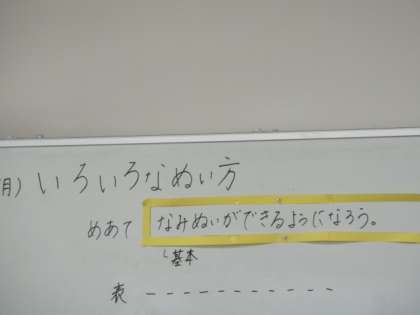 月) いろいろなぬい方
めあて なみぬいができるようになろう。
基本
表 - - - - - - - - - - -